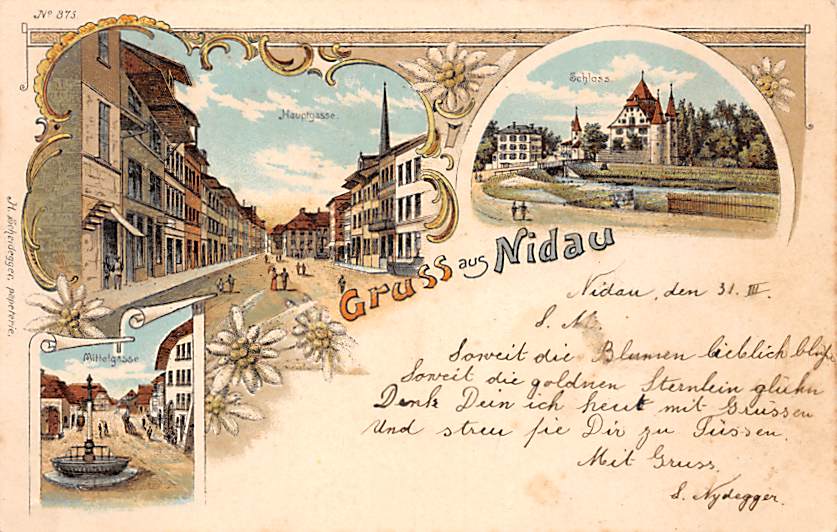 No 875.
Hauptgasse.
Schloss.
Gruss aus Nidau
Mittelgasse
papeterie.
Nidau, den 31. III.
Soweit die Blumen lieblich blühn
Soweit die goldnen Sternlein glühn
Denk Dein ich heut mit Grussen
Und streu sie Dir zu Füssen.
Mit Gruss.
S. Nydegger.